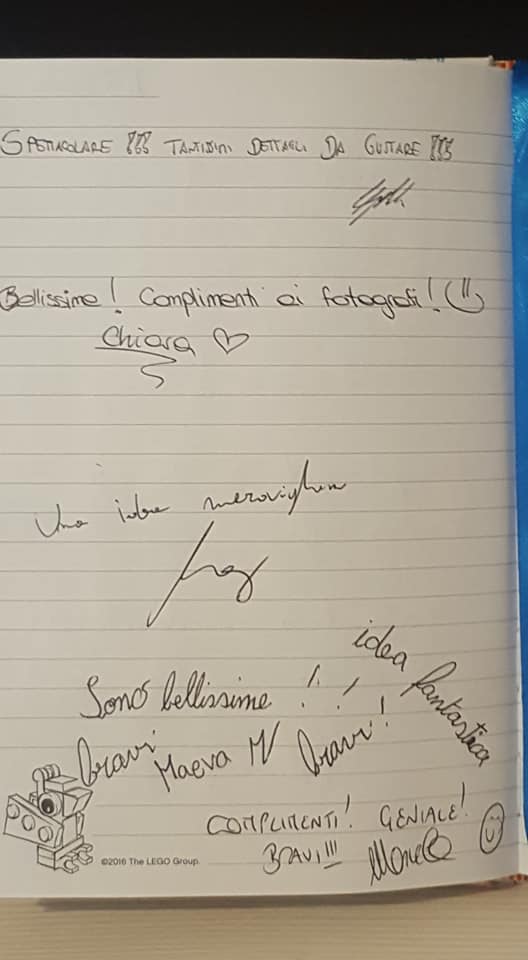 SPETTACOLARE !!! TANTISSIMI DETTAGLI DA GUSTARE !!!
Bellissime! Complimenti ai fotografi!
Chiara
Una idea
Sono bellissime !!
idea fantastica
bravi Maeva bravi!
COMPLIMENTI! GENIALE!
BRAVI!!!
©2016 The LEGO Group.